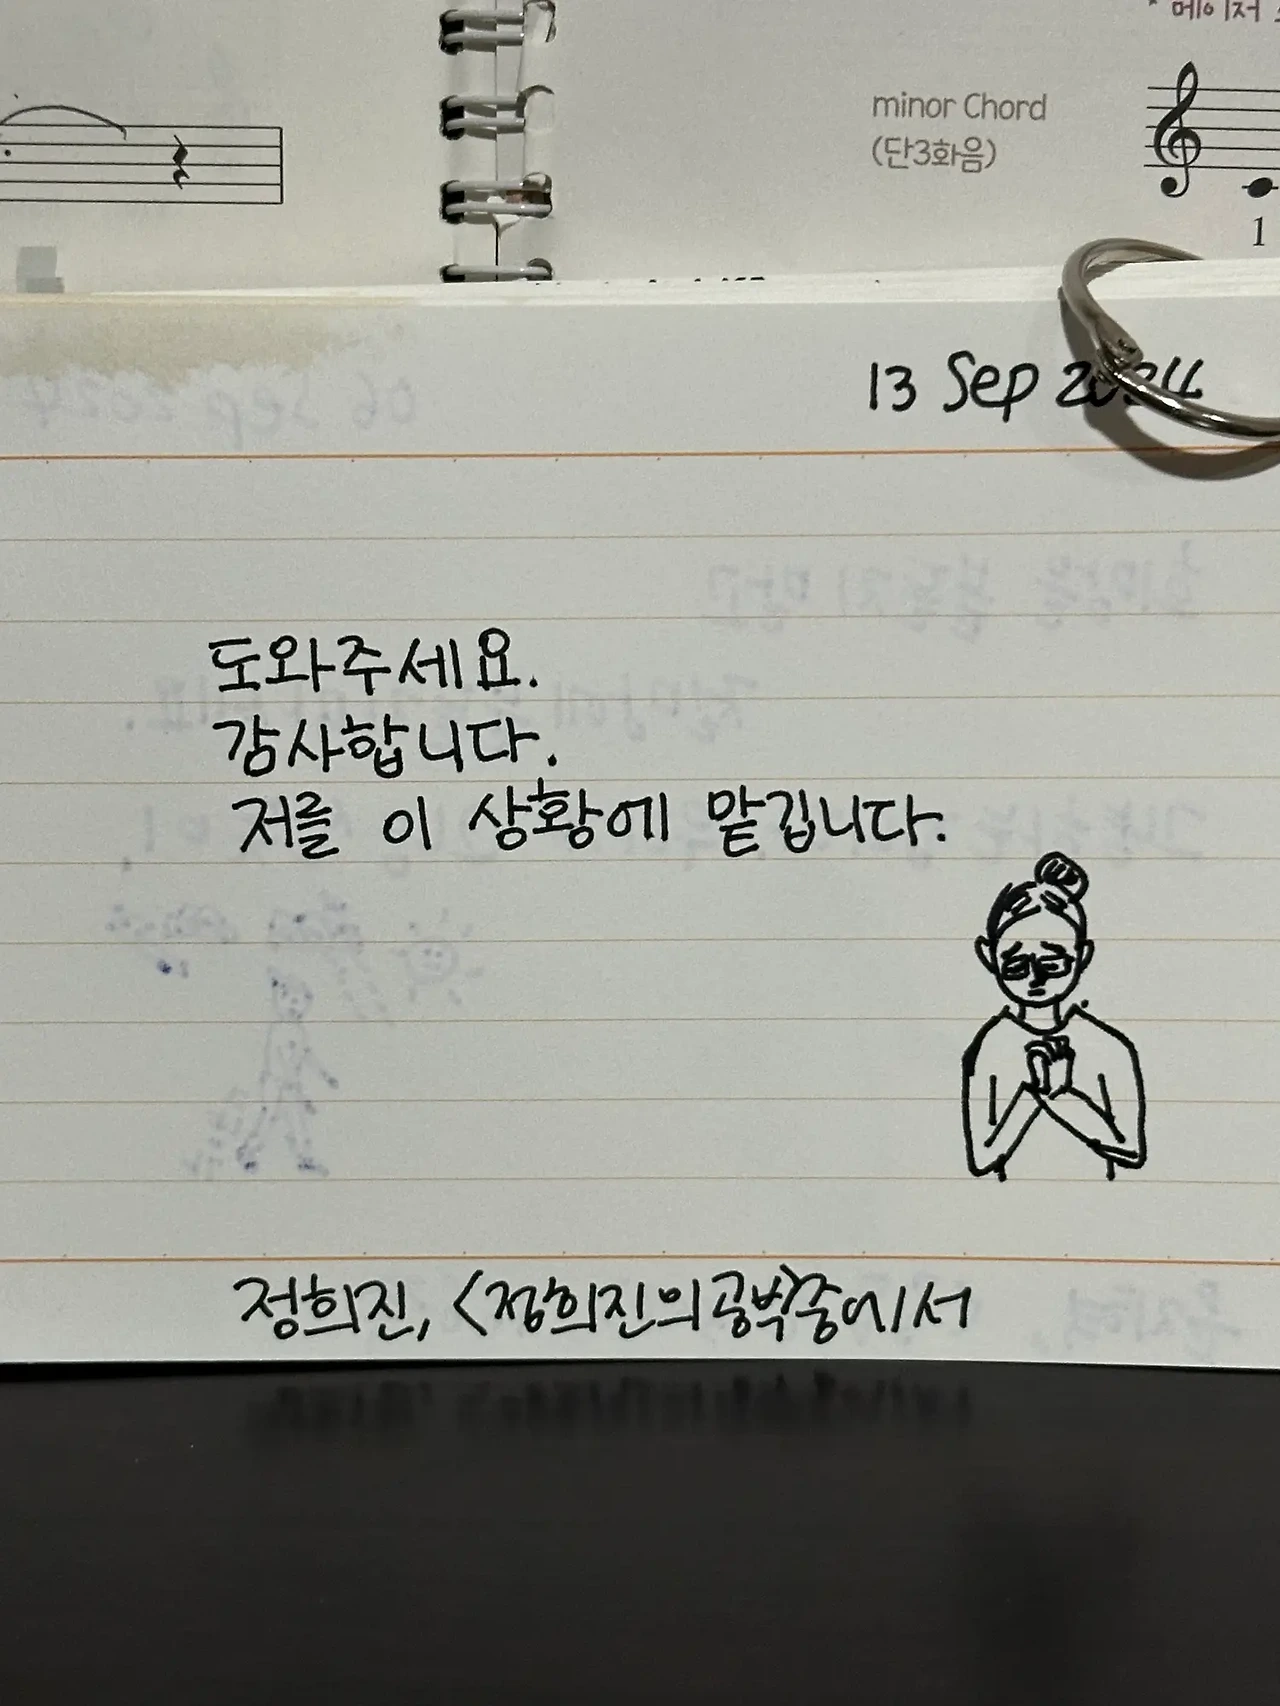 * 메이저
minor Chord
(단3화음)
1
13 Sep 2024
도와주세요.
감사합니다.
저를 이 상황에 맡깁니다.
정희진, <정희진의 공부> 중에서